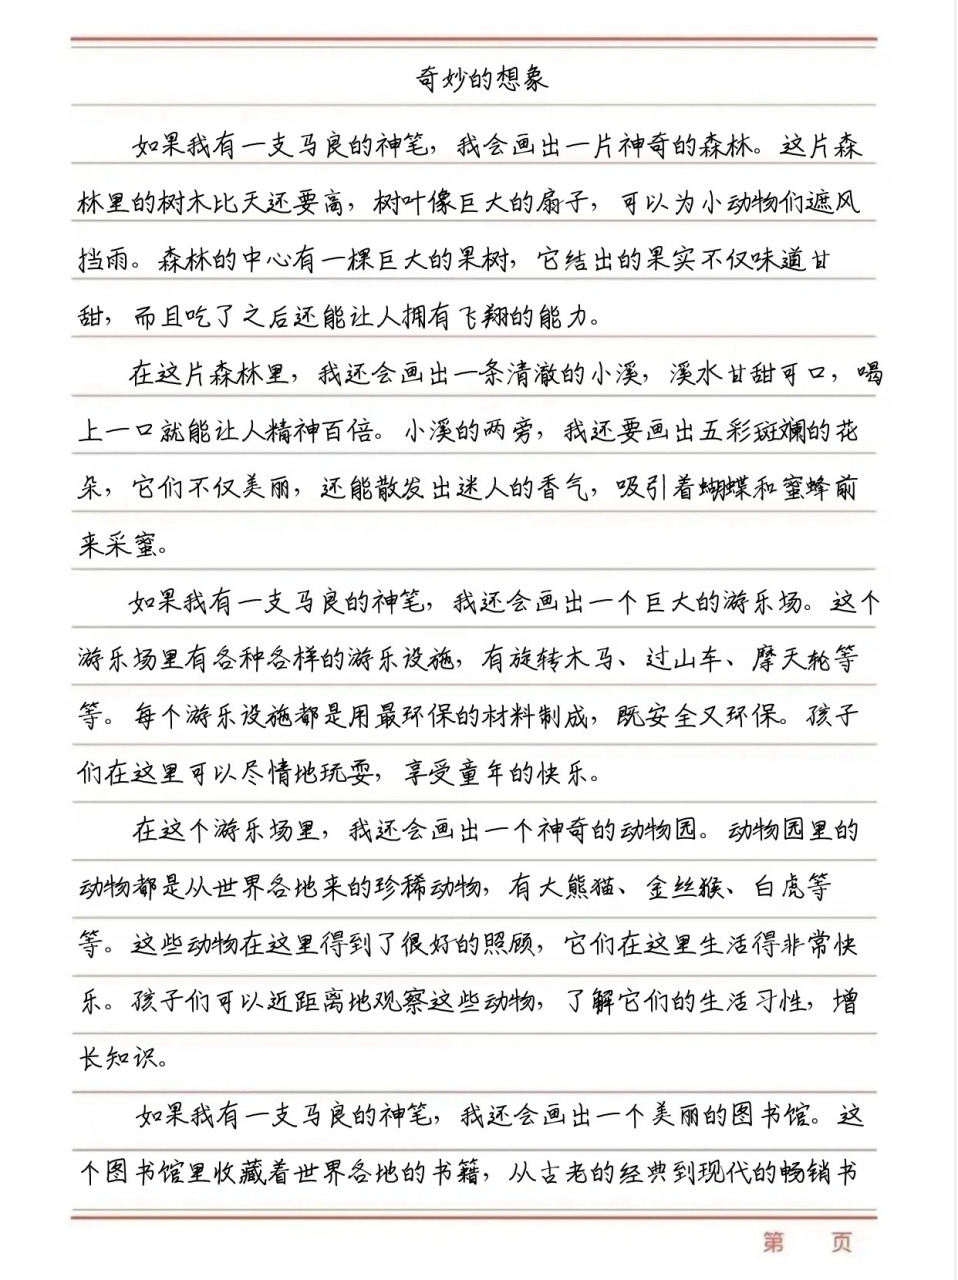 奇妙的想象
如果我有一支马良的神笔，我会画出一片神奇的森林。这片森
林里的树木比天还要高，树叶像巨大的扇子，可以为小动物们遮风
挡雨。森林的中心有一棵巨大的果树，它结出的果实不仅味道甘
甜，而且吃了之后还能让人拥有飞翔的能力。
在这片森林里，我还会画出一条清澈的小溪，溪水甘甜可口，喝
上一口就能让人精神百倍。小溪的两旁，我还要画出五彩斑斓的花
朵，它们不仅美丽，还能散发出迷人的香气，吸引着蝴蝶和蜜蜂前
来采蜜。
如果我有一支马良的神笔，我还会画出一个巨大的游乐场。这个
游乐场里有各种各样的游乐设施，有旋转木马、过山车、摩天轮等
等。每个游乐设施都是用最环保的材料制成，既安全又环保。孩子
们在这里可以尽情地玩耍，享受童年的快乐。
在这个游乐场里，我还会画出一个神奇的动物园。动物园里的
动物都是从世界各地来的珍稀动物，有大熊猫、金丝猴、白虎等
等。这些动物在这里得到了很好的照顾，它们在这里生活得非常快
乐。孩子们可以近距离地观察这些动物，了解它们的生活习性，增
长知识。
如果我有一支马良的神笔，我还会画出一个美丽的图书馆。这
个图书馆里收藏着世界各地的书籍，从古老的经典到现代的畅销书
第 页